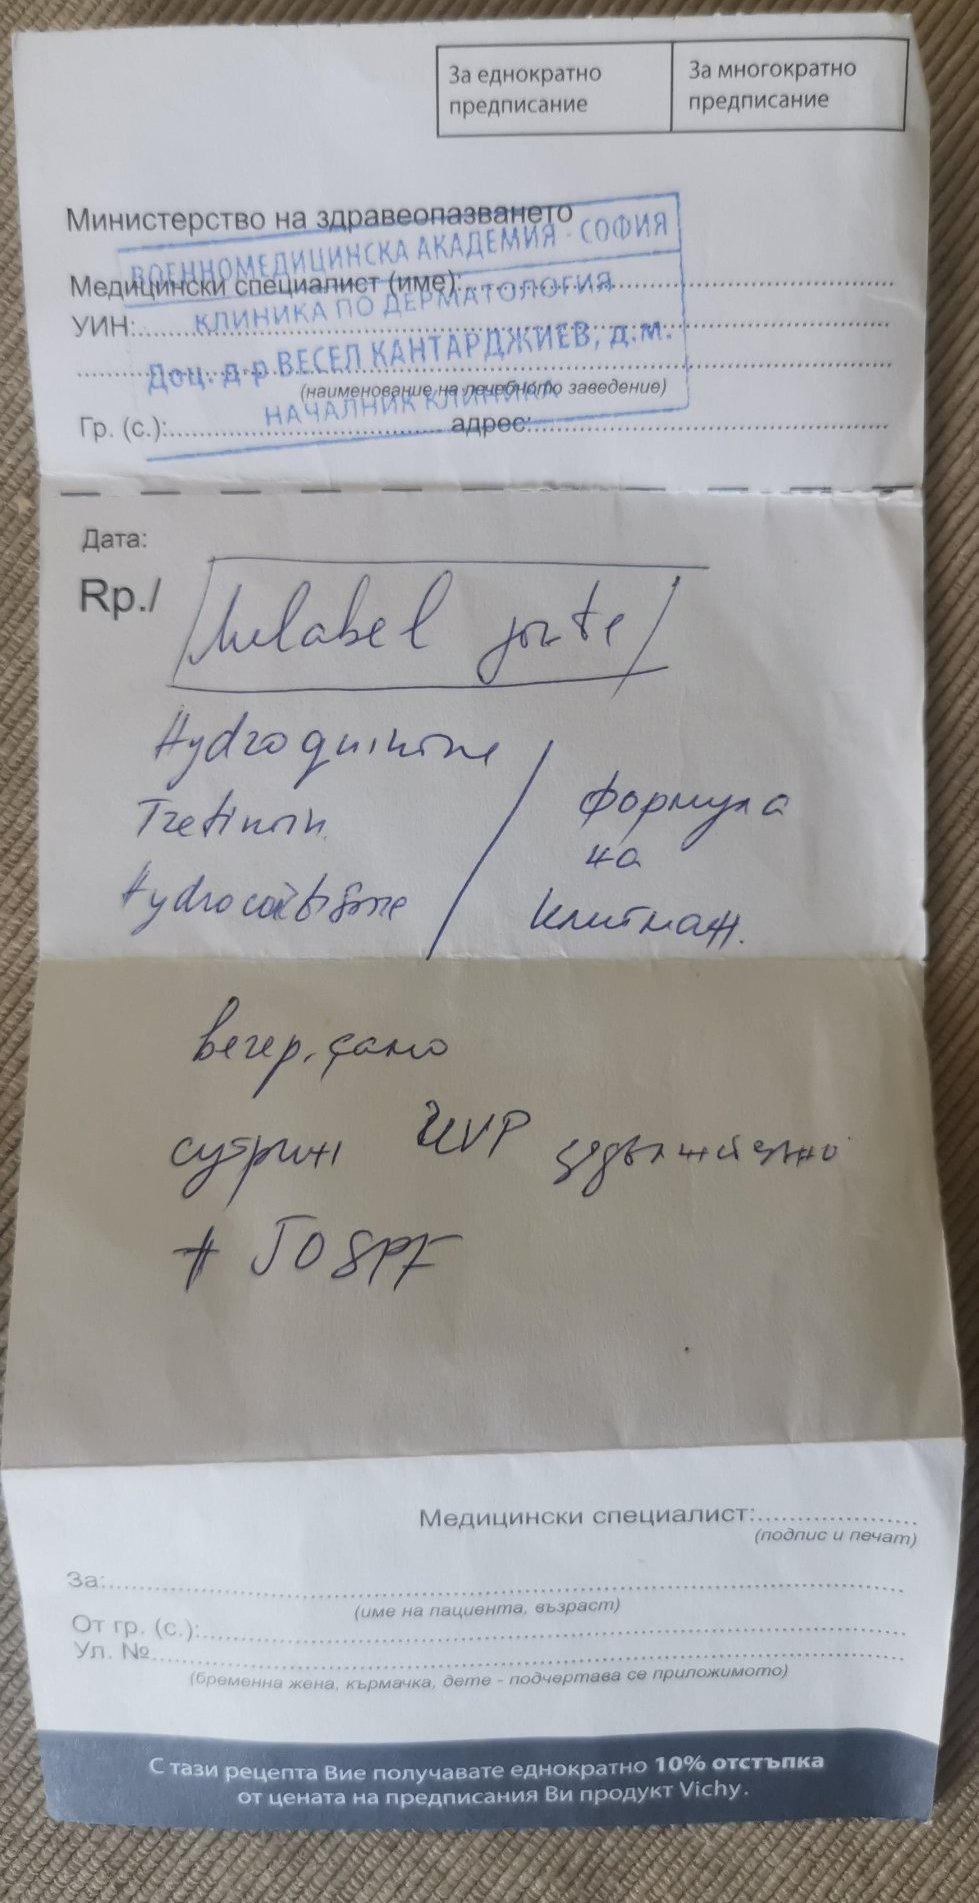 За еднократно предписание
За многократно предписание
Министерство на здравеопазването
ВОЕННОМЕДИЦИНСКА АКАДЕМИЯ - СОФИЯ
Медицински специалист (име):
КЛИНИКА ПО ДЕРМАТОЛОГИЯ
УИН:
Доц. д-р ВЕСЕЛ КАНТАРДЖИЕВ, д.м.
(наименование на лечебното заведение)
НАЧАЛНИК КЛИНИКА
Гр. (с.): адрес:
Дата:
Rp./ Melabel forte
Hydroquinone
Tretinoin
Hydrocortisone
формула
на
Клигман.
вечер, само
сутрин задължително
+ 50 SPF
Медицински специалист:
(подпис и печат)
За:
(име на пациента, възраст)
От гр. (с.):
Ул. №
(бременна жена, кърмачка, дете - подчертава се приложимото)
С тази рецепта Вие получавате еднократно 10% отстъпка
от цената на предписания Ви продукт Vichy.